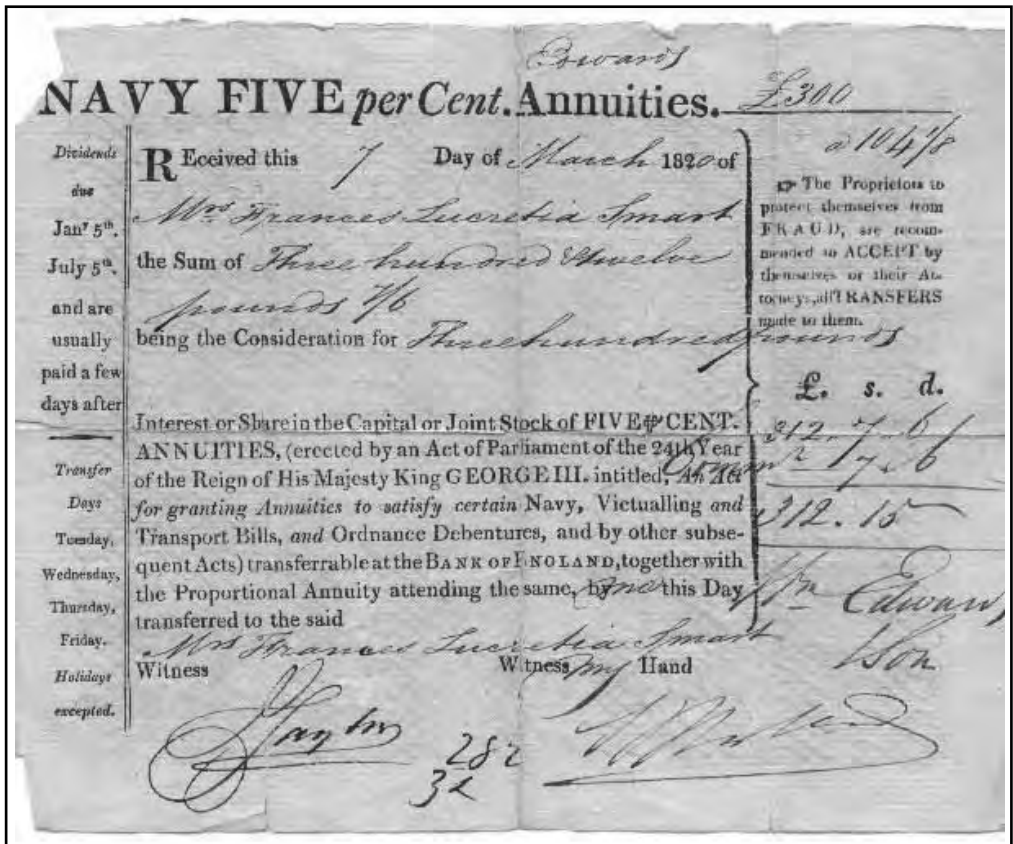 Edwards
NAVY FIVE per Cent. Annuities. £300
a 104 1/8
Dividends
due
Janʸ 5ᵗʰ.
July 5ᵗʰ.
and are
usually
paid a few
days after
Transfer
Days
Tuesday,
Wednesday,
Thursday,
Friday.
Holidays
excepted.
REceived this 7 Day of March 1820 of
Mrs Frances Lucretia Smart
the Sum of Three hundred & twelve
pounds 7/6
being the Consideration for Three hundred pounds
Interest or Share in the Capital or Joint Stock of FIVE ⅌ CENT.
ANNUITIES, (erected by an Act of Parliament of the 24th Year
of the Reign of His Majesty King GEORGE III. intitled, An Act
for granting Annuities to satisfy certain Navy, Victualling and
Transport Bills, and Ordnance Debentures, and by other subse-
quent Acts) transferrable at the BANK OF ENGLAND, together with
the Proportional Annuity attending the same, by me this Day
transferred to the said
Mrs Frances Lucretia Smart
Witness Witness my Hand
282
32
☞ The Proprietors to
protect themselves from
FRAUD, are recom-
mended to ACCEPT by
themselves or their At-
torneys, all TRANSFERS
made to them.
£. s. d.
312. 7. 6
7. 6
312. 15
Edwards
& Son